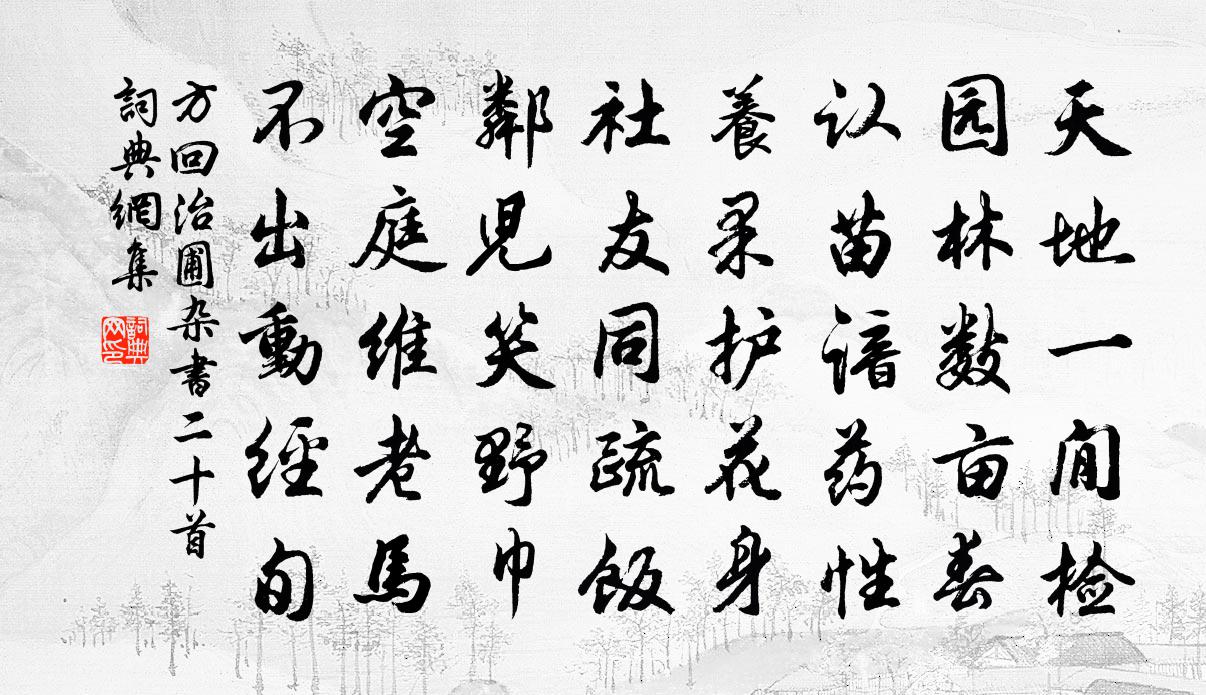 天地一闲检
园林数亩春
认苗谙药性
養果护花身
社友同疏飯
鄰児笑野巾
空庭維老馬
不出動經旬
方回治圃杂書二十首
詞典網集
詞典网印